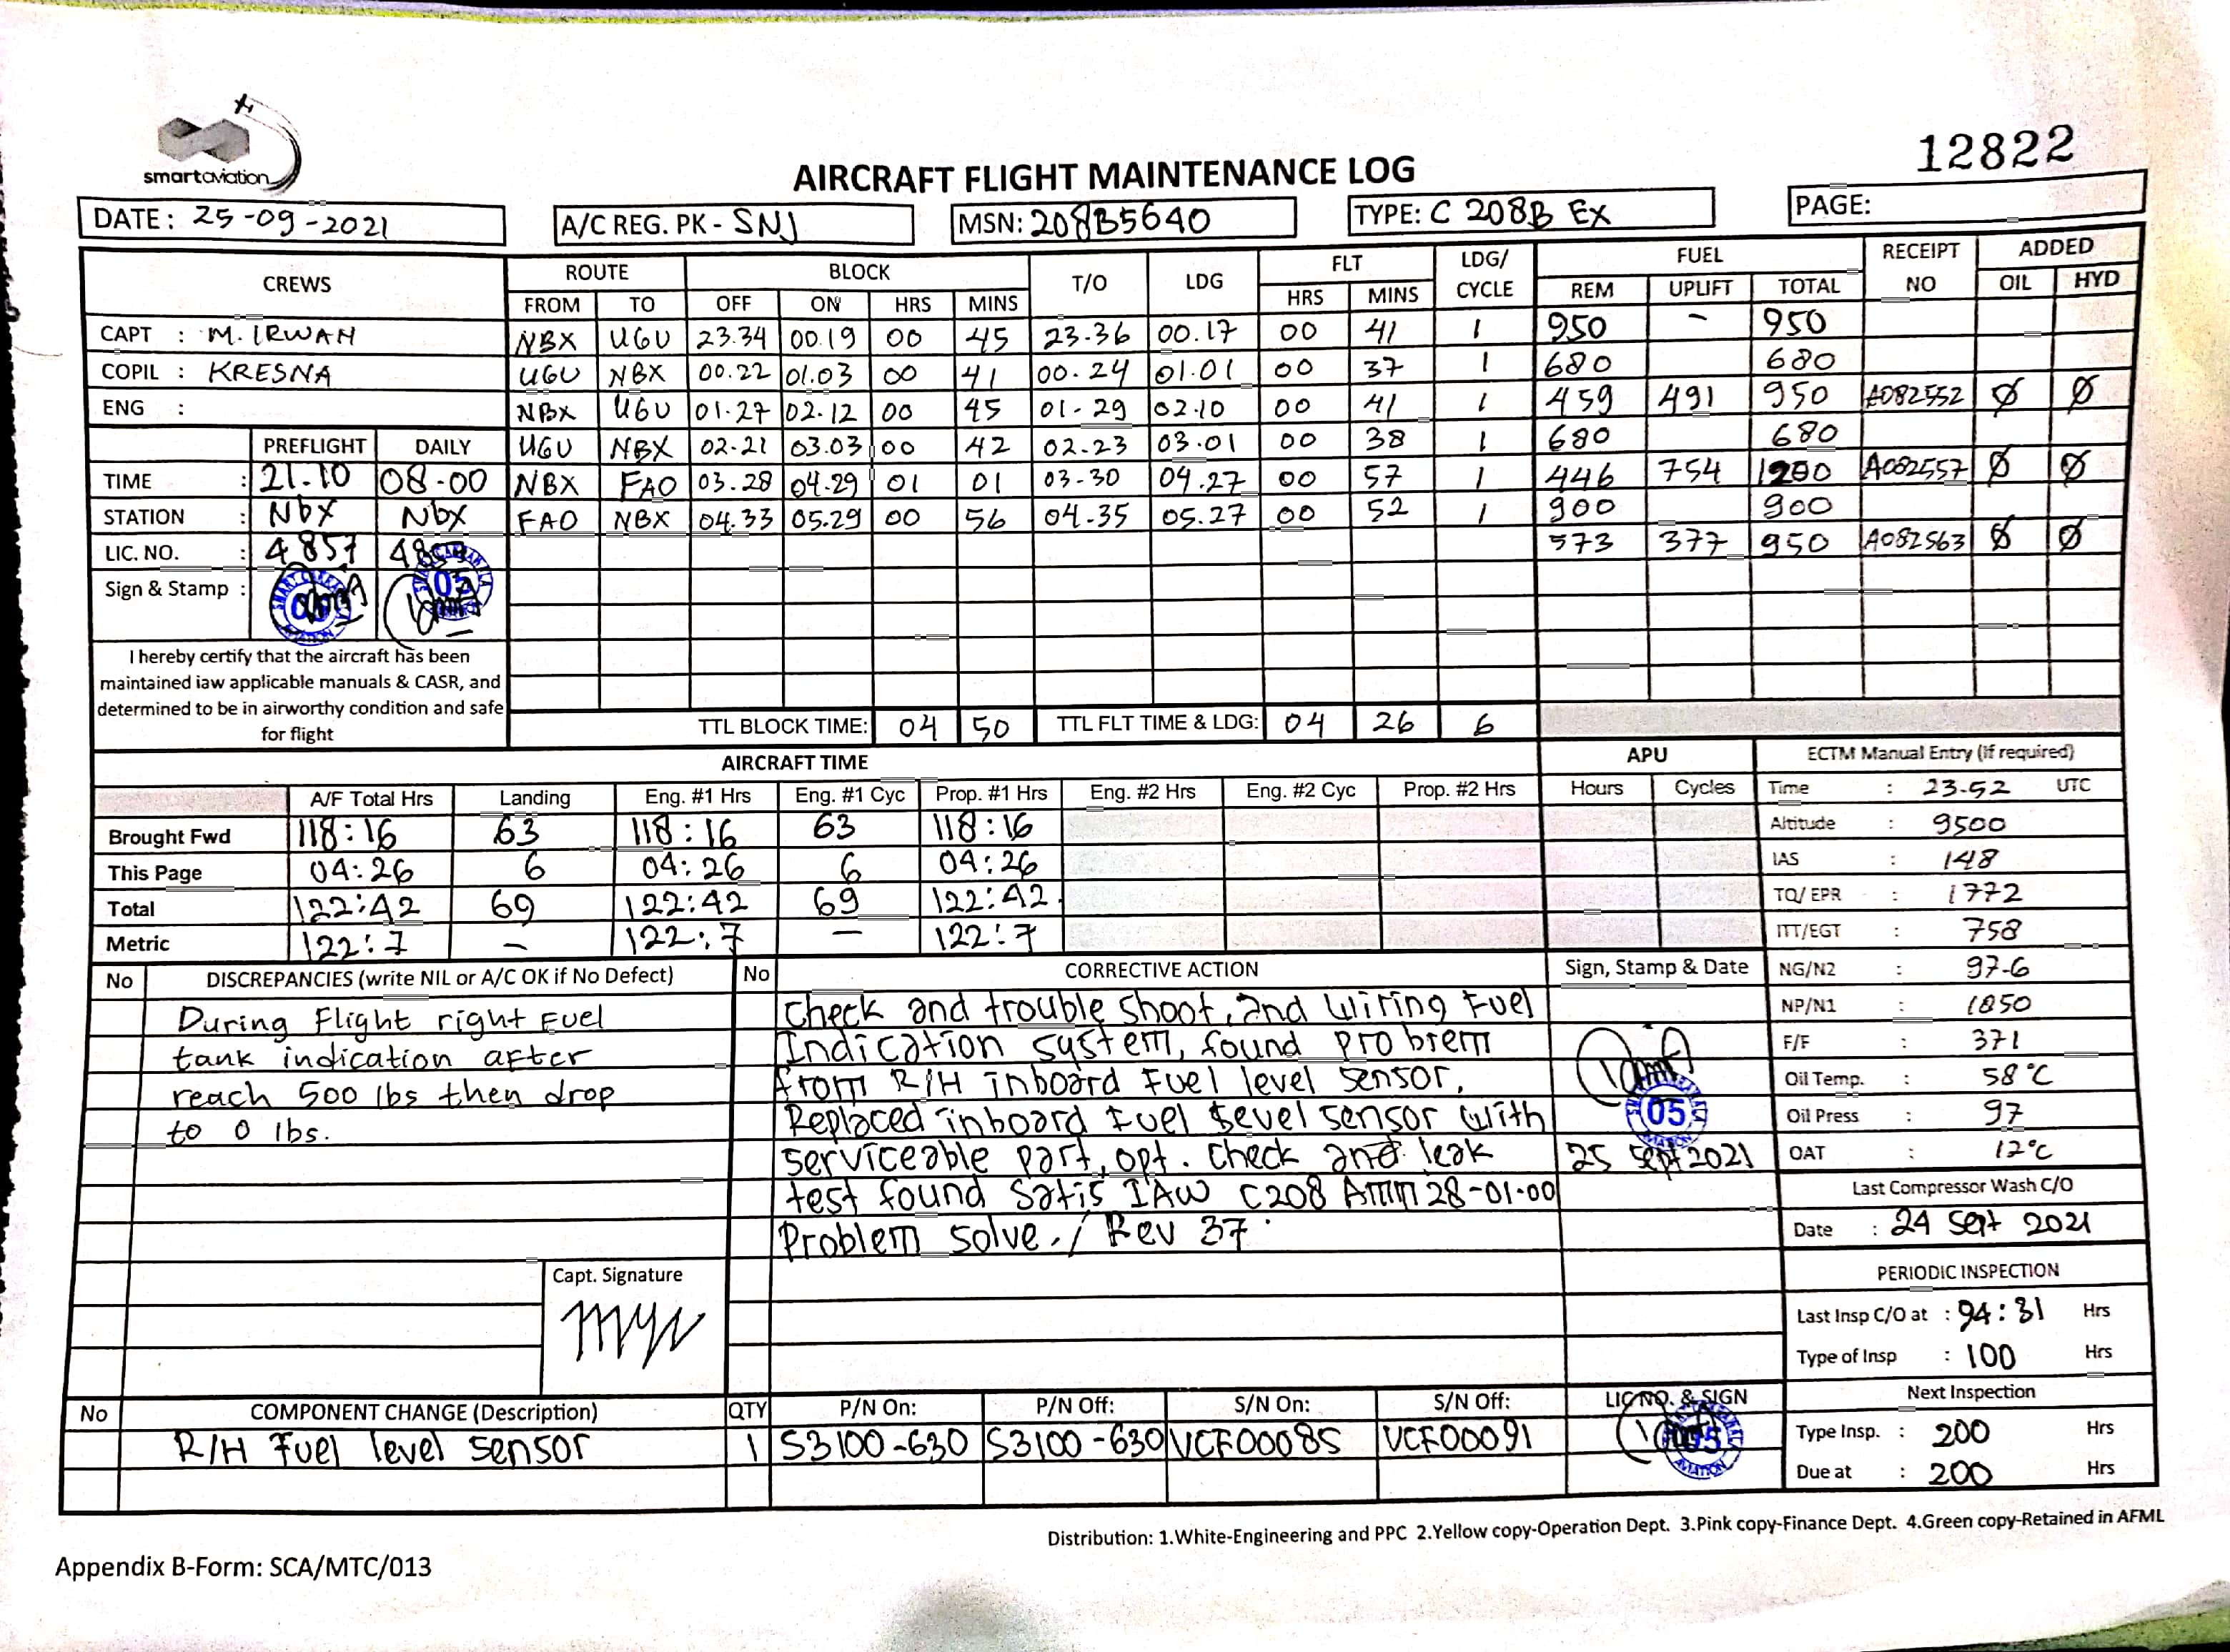 smartaviation
12822
AIRCRAFT FLIGHT MAINTENANCE LOG
DATE: 25-09-2021 A/C REG. PK - SNJ MSN: 208B5640 TYPE: C 208B EX PAGE:
CREWS ROUTE BLOCK T/O LDG FLT LDG/ CYCLE FUEL RECEIPT NO ADDED
FROM TO OFF ON HRS MINS HRS MINS REM UPLIFT TOTAL OIL HYD
CAPT : M. IRWAN NBX UGU 23.34 00.19 00 45 23.36 00.17 00 41 1 950 - 950
COPIL : KRESNA UGU NBX 00.22 01.03 00 41 00.24 01.01 00 37 1 680 680
ENG : NBX UGU 01.27 02.12 00 45 01.29 02.10 00 41 1 459 491 950 A082552 Ø Ø
PREFLIGHT DAILY UGU NBX 02.21 03.03 00 42 02.23 03.01 00 38 1 680 680
TIME : 21.10 08.00 NBX FAO 03.28 04.29 01 01 03.30 04.27 00 57 1 446 754 1200 A082557 Ø Ø
STATION : Nbx Nbx FAO NBX 04.33 05.29 00 56 04.35 05.27 00 52 1 900 900
LIC. NO. : 4857 573 377 950 A082563 Ø Ø
Sign & Stamp :
I hereby certify that the aircraft has been
maintained iaw applicable manuals & CASR, and
determined to be in airworthy condition and safe
for flight
TTL BLOCK TIME: 04 50 TTL FLT TIME & LDG: 04 26 6
AIRCRAFT TIME APU ECTM Manual Entry (if required)
A/F Total Hrs Landing Eng. #1 Hrs Eng. #1 Cyc Prop. #1 Hrs Eng. #2 Hrs Eng. #2 Cyc Prop. #2 Hrs Hours Cycles Time : 23.52 UTC
Brought Fwd 118:16 63 118:16 63 118:16 Altitude : 9500
This Page 04:26 6 04:26 6 04:26 IAS : 148
Total 122:42 69 122:42 69 122:42 TQ/ EPR : 1772
Metric 122:7 - 122:7 - 122:7 ITT/EGT : 758
No DISCREPANCIES (write NIL or A/C OK if No Defect) No CORRECTIVE ACTION Sign, Stamp & Date NG/N2 : 97.6
During Flight right Fuel
tank indication after
reach 500 lbs then drop
to 0 lbs.
Check and trouble shoot, and wiring Fuel
Indication system, found probrem
from R/H inboard Fuel level sensor.
Replaced inboard Fuel level sensor with
serviceable part, opt. check and leak
test found Satis IAW C208 AMM 28-01-00
Problem solve. / Rev 37
05
25 Sept 2021
NP/N1 : 1850
F/F : 371
Oil Temp. : 58°C
Oil Press : 97
OAT : 12°C
Last Compressor Wash C/O
Date : 24 Sept 2021
Capt. Signature
PERIODIC INSPECTION
Last Insp C/O at : 94:31 Hrs
Type of Insp : 100 Hrs
Next Inspection
Type Insp. : 200 Hrs
Due at : 200 Hrs
No COMPONENT CHANGE (Description) QTY P/N On: P/N Off: S/N On: S/N Off: LIC NO. & SIGN
R/H Fuel level sensor 1 S3100-630 S3100-630 VCF00085 VCF00091
Distribution: 1.White-Engineering and PPC 2.Yellow copy-Operation Dept. 3.Pink copy-Finance Dept. 4.Green copy-Retained in AFML
Appendix B-Form: SCA/MTC/013